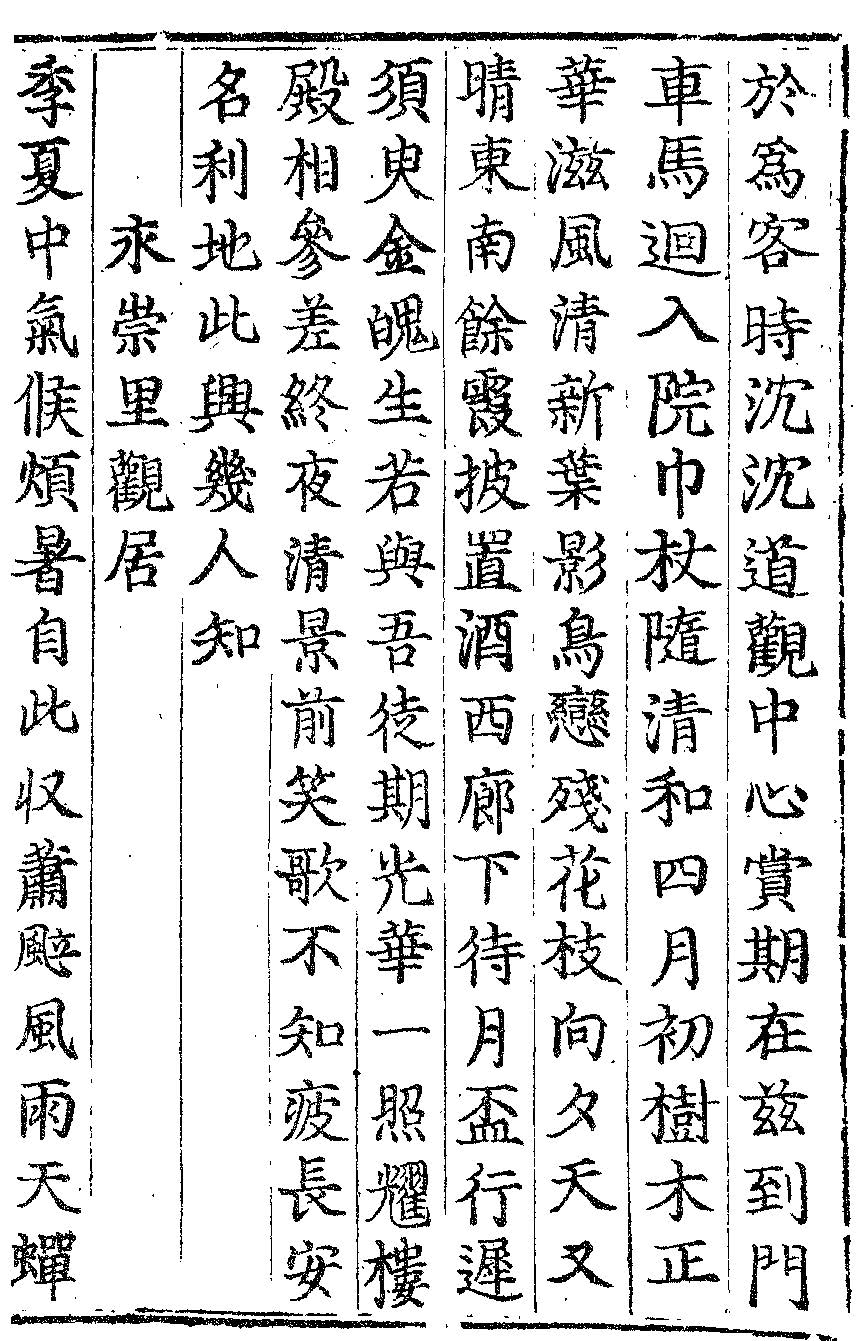 於爲客時沈沈道觀中心賞期在兹到門
車馬迴入院巾杖隨清和四月初樹木正
華滋風清新葉影鳥戀殘花枝向夕天又
晴東南餘霞披置酒西廊下待月盃行遲
須臾金魄生若與吾徒期光華一照耀樓
殿相參差終夜清景前笑歌不知疲長安
名利地此興幾人知
永崇里觀居
季夏中氣候煩暑自此収蕭颼風雨天蟬